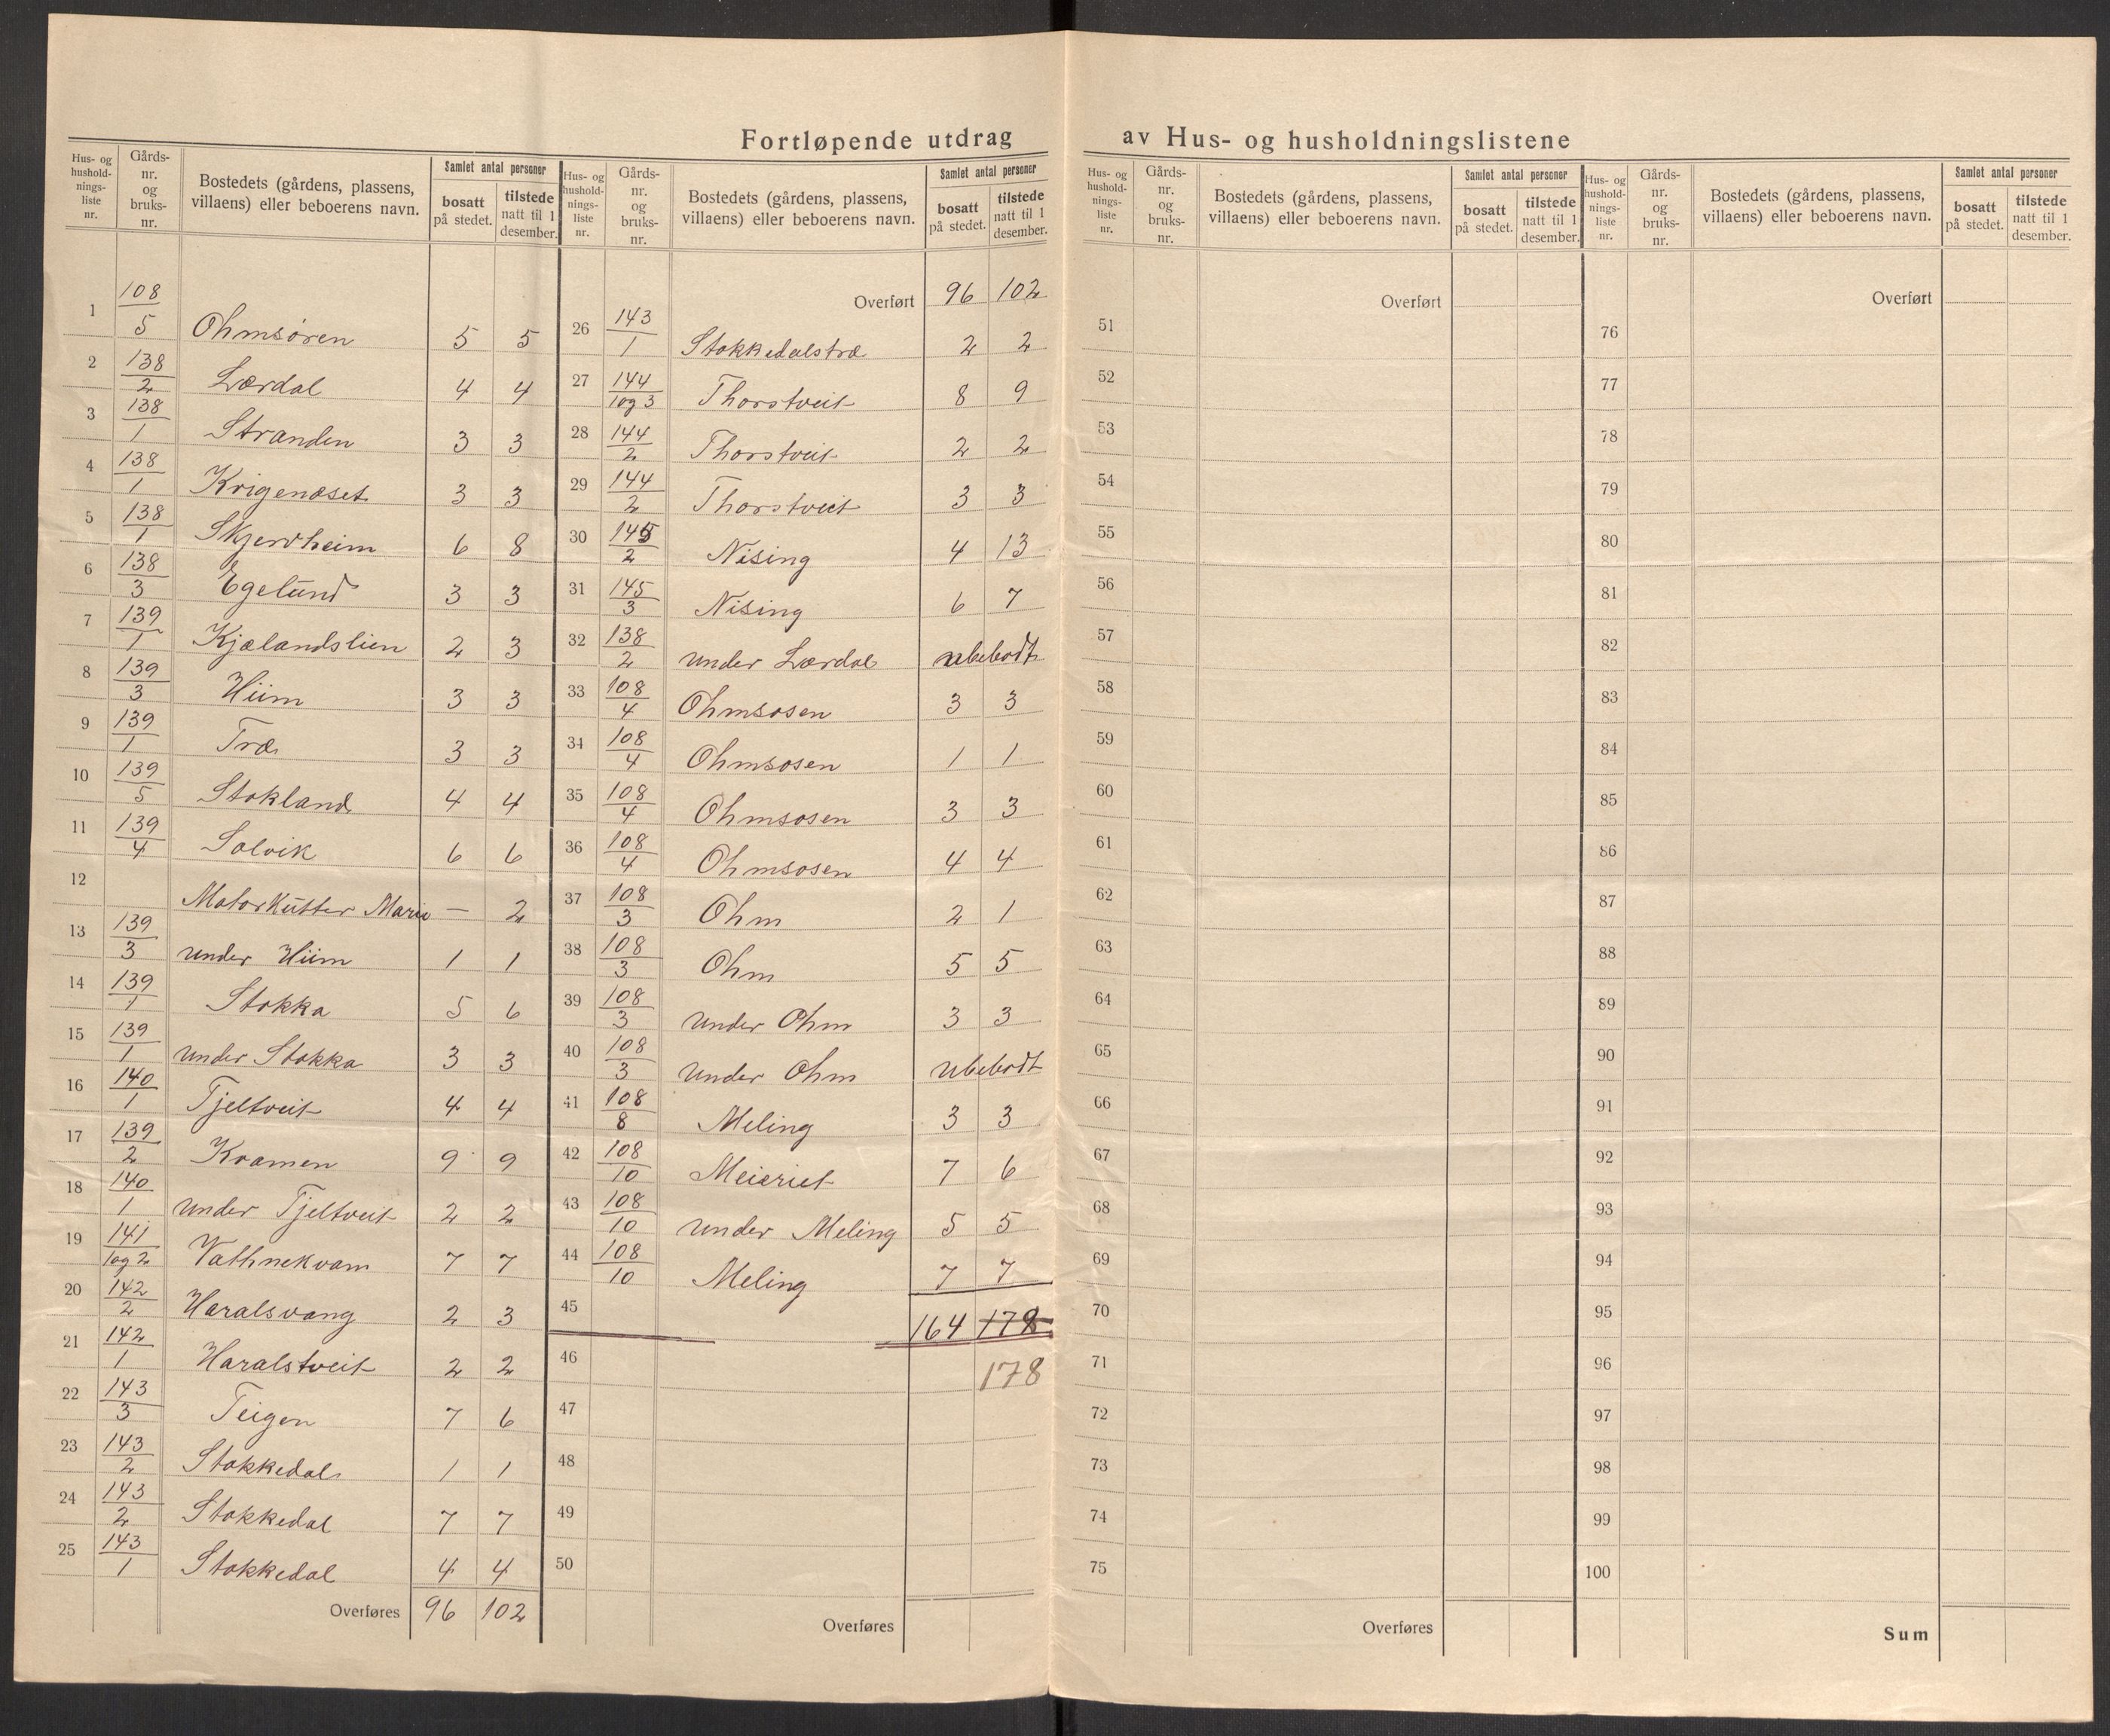 Fortløpende utdrag av Hus- og husholdningslistene
Hus- og hushold-nings-liste nr. | Gårds-nr. og bruks-nr. | Bostedets (gårdens, plassens, villaens) eller beboerens navn. | Samlet antal personer | bosatt på stedet. | tilstede natt til 1 desember.
1 108/5 Ohmsøren 5 5
2 138/2 Lærdal 4 4
3 138/1 Stranden 3 3
4 138/1 Krigenæset 3 3
5 138/1 Skjervheim 6 8
6 138/3 Egelund 3 3
7 139/1 Kjælandslien 2 3
8 139/3 Hiim 3 3
9 139/1 Træ 3 3
10 139/5 Stokland 4 4
11 139/4 Solvik 6 6
12 Motorkutter Marie — 2
13 139/3 under Hiim 1 1
14 139/1 Stokka 5 6
15 139/1 under Stokka 3 3
16 140/1 Tjeltveit 4 4
17 139/2 Kramen 9 9
18 140/1 under Tjeltveit 2 2
19 141/1 og 2 Vathnekvam 7 7
20 142/2 Haralsvang 2 3
21 142/1 Haralstveit 2 2
22 143/3 Teigen 7 6
23 143/2 Stokkedal 1 1
24 143/2 Stokkedal 7 7
25 143/1 Stokkedal 4 4
Overføres 96 102
Hus- og hushold-nings-liste nr. | Gårds-nr. og bruks-nr. | Bostedets (gårdens, plassens, villaens) eller beboerens navn. | Samlet antal personer | bosatt på stedet. | tilstede natt til 1 desember.
Overført 96 102
26 143/1 Stokkedalstræ 2 2
27 144/1 og 3 Thorstveit 8 9
28 144/2 Thorstveit 2 2
29 144/2 Thorstveit 3 3
30 145/2 Nising 4 13
31 145/3 Nising 6 7
32 138/2 under Lærdal ubebodt
33 108/4 Ohmsosen 3 3
34 108/4 Ohmsosen 1 1
35 108/4 Ohmsosen 3 3
36 108/4 Ohmsosen 4 4
37 108/3 Ohm 2 1
38 108/3 Ohm 5 5
39 108/3 under Ohm 3 3
40 108/3 under Ohm ubebodt
41 108/8 Meling 3 3
42 108/10 Meieriet 7 6
43 108/10 under Meling 5 5
44 108/10 Meling 7 7
45 164 178
46 178
47
48
49
50
Overføres
Hus- og hushold-nings-liste nr. | Gårds-nr. og bruks-nr. | Bostedets (gårdens, plassens, villaens) eller beboerens navn. | Samlet antal personer | bosatt på stedet. | tilstede natt til 1 desember.
Overført
51
52
53
54
55
56
57
58
59
60
61
62
63
64
65
66
67
68
69
70
71
72
73
74
75
Overføres
Hus- og hushold-nings-liste nr. | Gårds-nr. og bruks-nr. | Bostedets (gårdens, plassens, villaens) eller beboerens navn. | Samlet antal personer | bosatt på stedet. | tilstede natt til 1 desember.
Overført
76
77
78
79
80
81
82
83
84
85
86
87
88
89
90
91
92
93
94
95
96
97
98
99
100
Sum